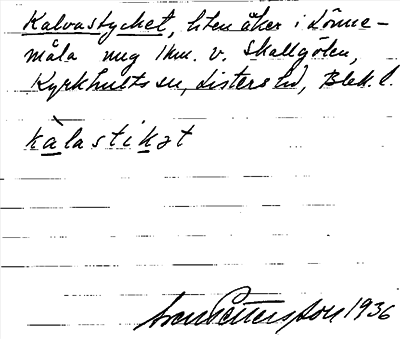 Kalvastycket, liten åker i Lönne-
måla mg 1 km. v. Skallgölen,
Kyrkhults sn, Listers hd, Blek. l.
kàlastikət
Sven Pettersson 1936